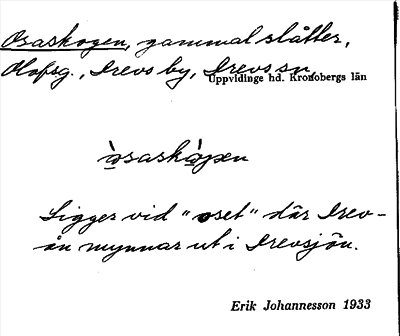 Osaskogen, gammal slåtter,
Olofsg., Drevs by, Drevs sn
Uppvidinge hd. Kronobergs län
òsaskò̀gen
Ligger vid "oset" där Drev-
ån mynnar ut i Drevsjön.
Erik Johannesson 1933